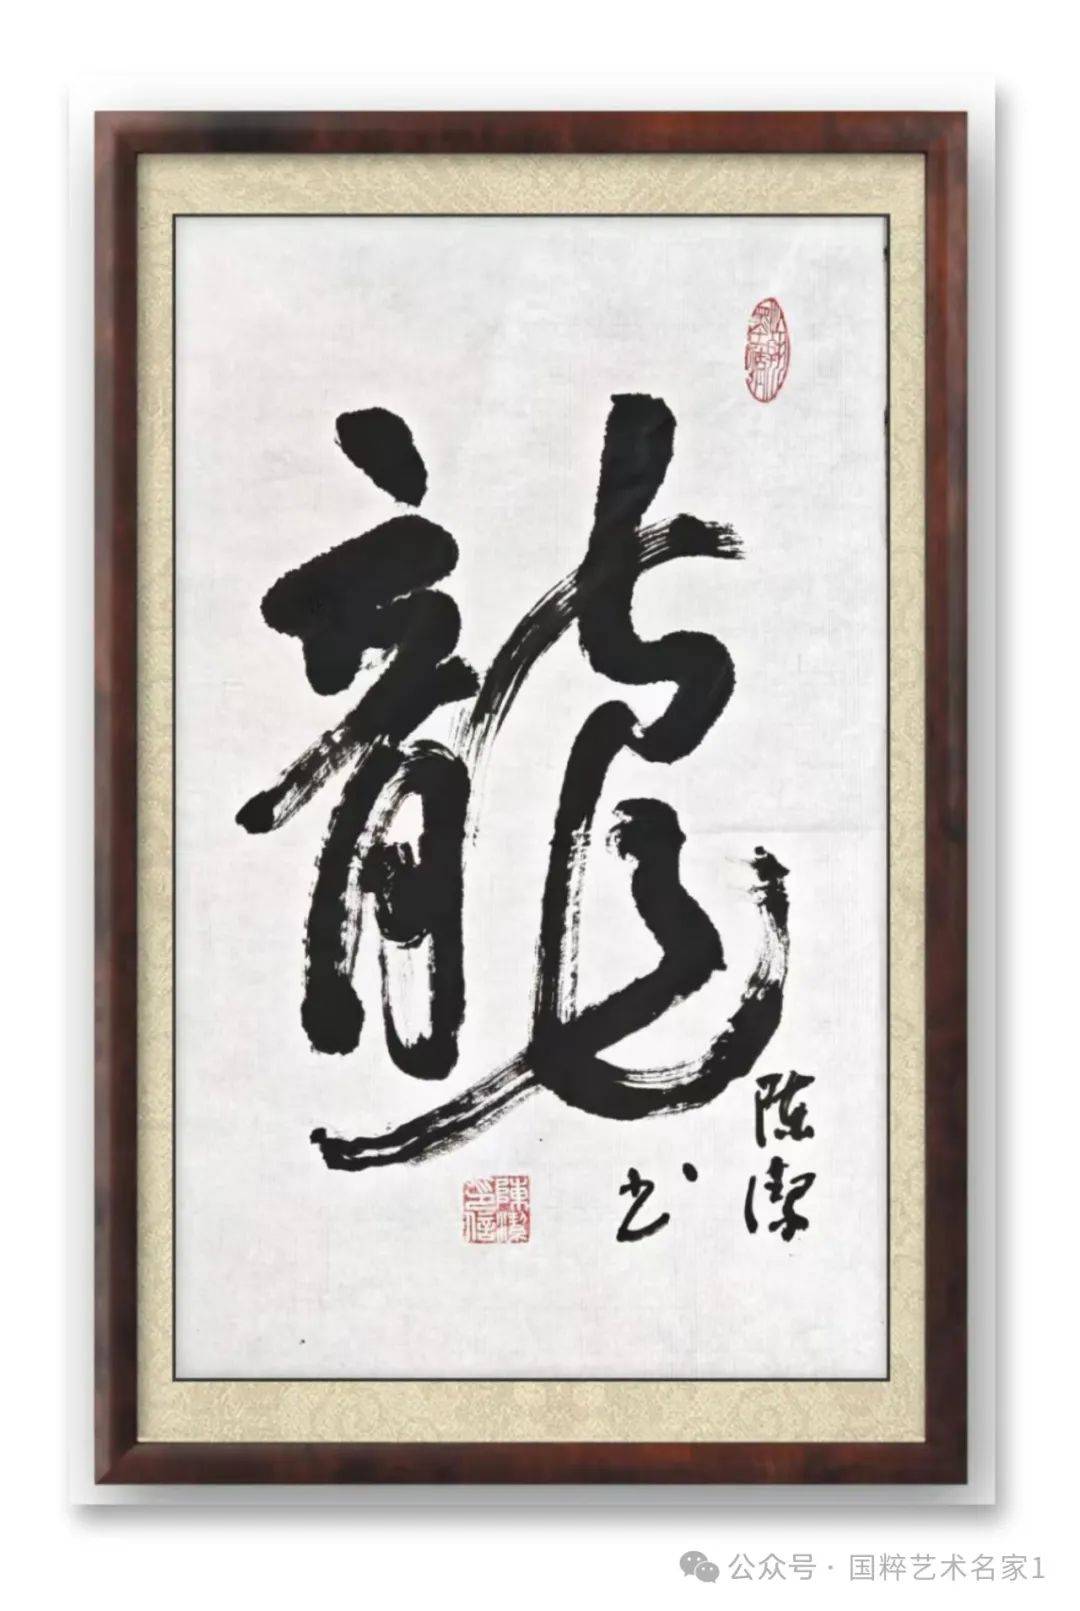 龍
陈潔
书
陳潔
印信
公众号 · 国粹艺术名家1